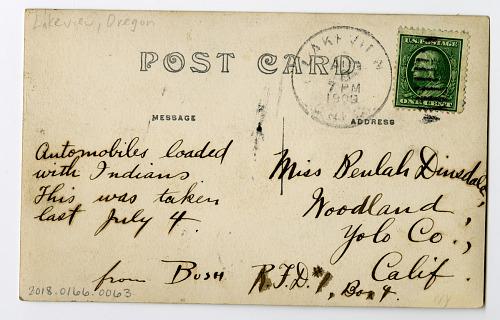 Lakeview, Oregon
POST CARD
LAKEVIEW
AUG
7 PM
1909
U.S. POSTAGE
ONE CENT
MESSAGE
ADDRESS
Automobiles loaded
with Indians
This was taken
last July 4.
from Bush
Miss Beulah Dinsdale,
Woodland,
Yolo Co.,
Calif.
R.F.D. #1, Box 4.
2018.0166.0063